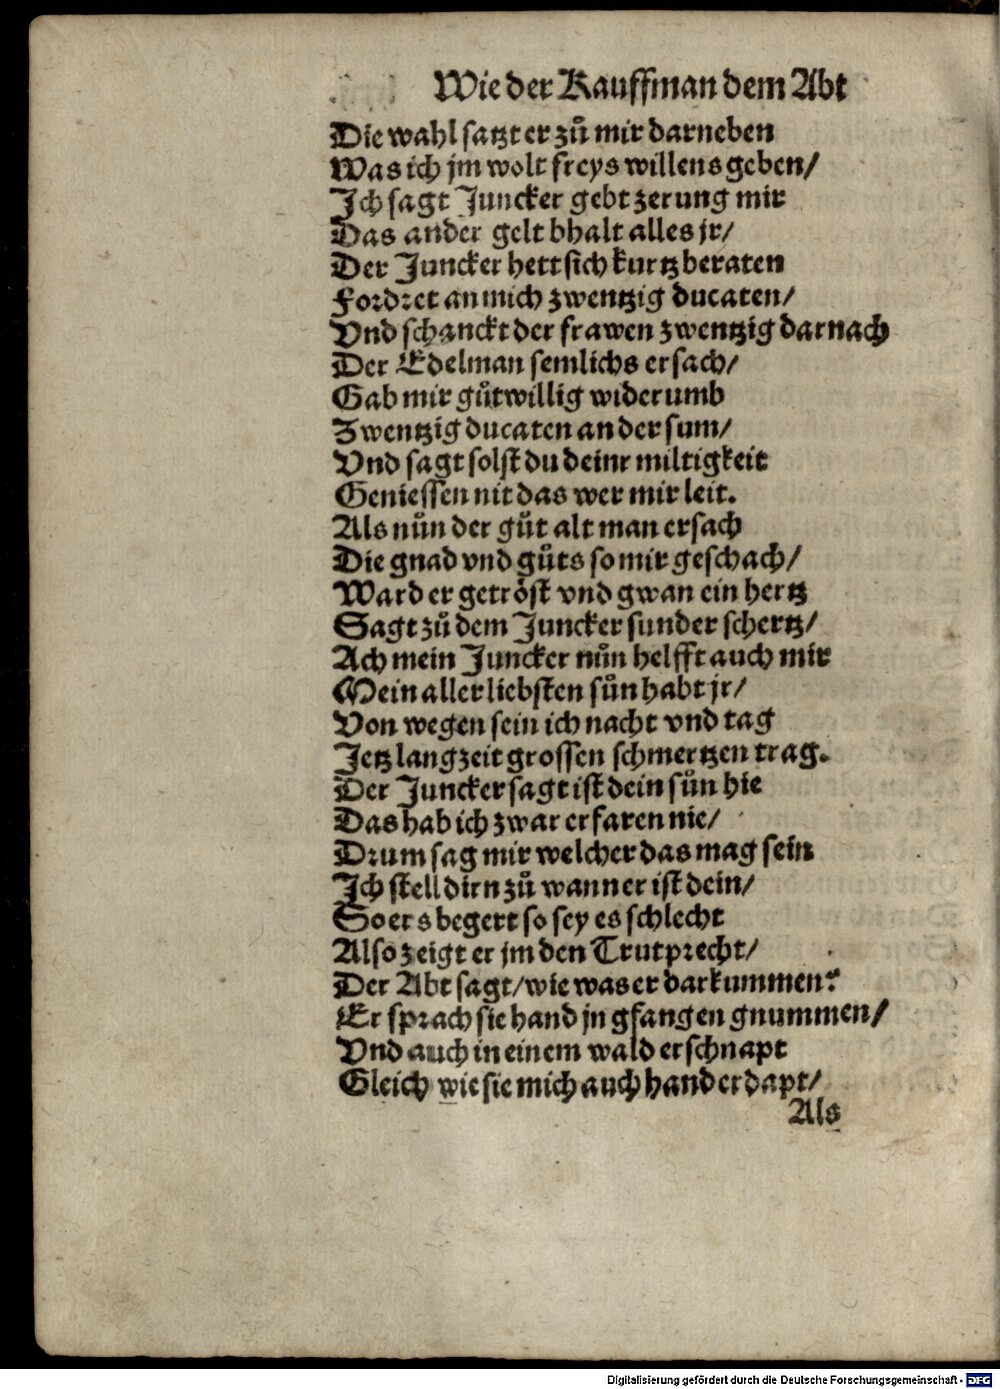 Wie der Kauffman dem Abt
Die wahl satzt er zů mir darneben
Was ich jm wolt freys willens geben/
Ich sagt Juncker gebt zerung mir
Das ander gelt bhalt alles jr/
Der Juncker hett sich kurtz beraten
Fordret an mich zwentzig ducaten/
Vnd schanckt der frawen zwentzig darnach
Der Edelman semlichs ersach/
Gab mir gůtwillig widerumb
Zwentzig ducaten an der sum/
Vnd sagt solst du deinr miltigkeit
Geniessen nit das wer mir leit.
Als nůn der gůt alt man ersach
Die gnad vnd gůts so mir geschach/
Ward er getröst vnd gwan ein hertz
Sagt zů dem Juncker sunder schertz/
Ach mein Juncker nůn helfft auch mir
Mein allerliebsten sůn habt jr/
Von wegen sein ich nacht vnd tag
Jetz lang zeit grossen schmertzen trag.
Der Juncker sagt ist dein sůn hie
Das hab ich zwar erfaren nie/
Drum sag mir welcher das mag sein
Ich stell dirn zů wann er ist dein/
So ers begert so sey es schlecht
Also zeigt er jm den Trutprecht/
Der Abt sagt/wie was er dar kummen?
Er sprach sie hand jn gfangen gnummen/
Vnd auch in einem wald erschnapt
Gleich wie sie mich auch hand erdapt/
Als
Digitalisierung gefördert durch die Deutsche Forschungsgemeinschaft - DFG